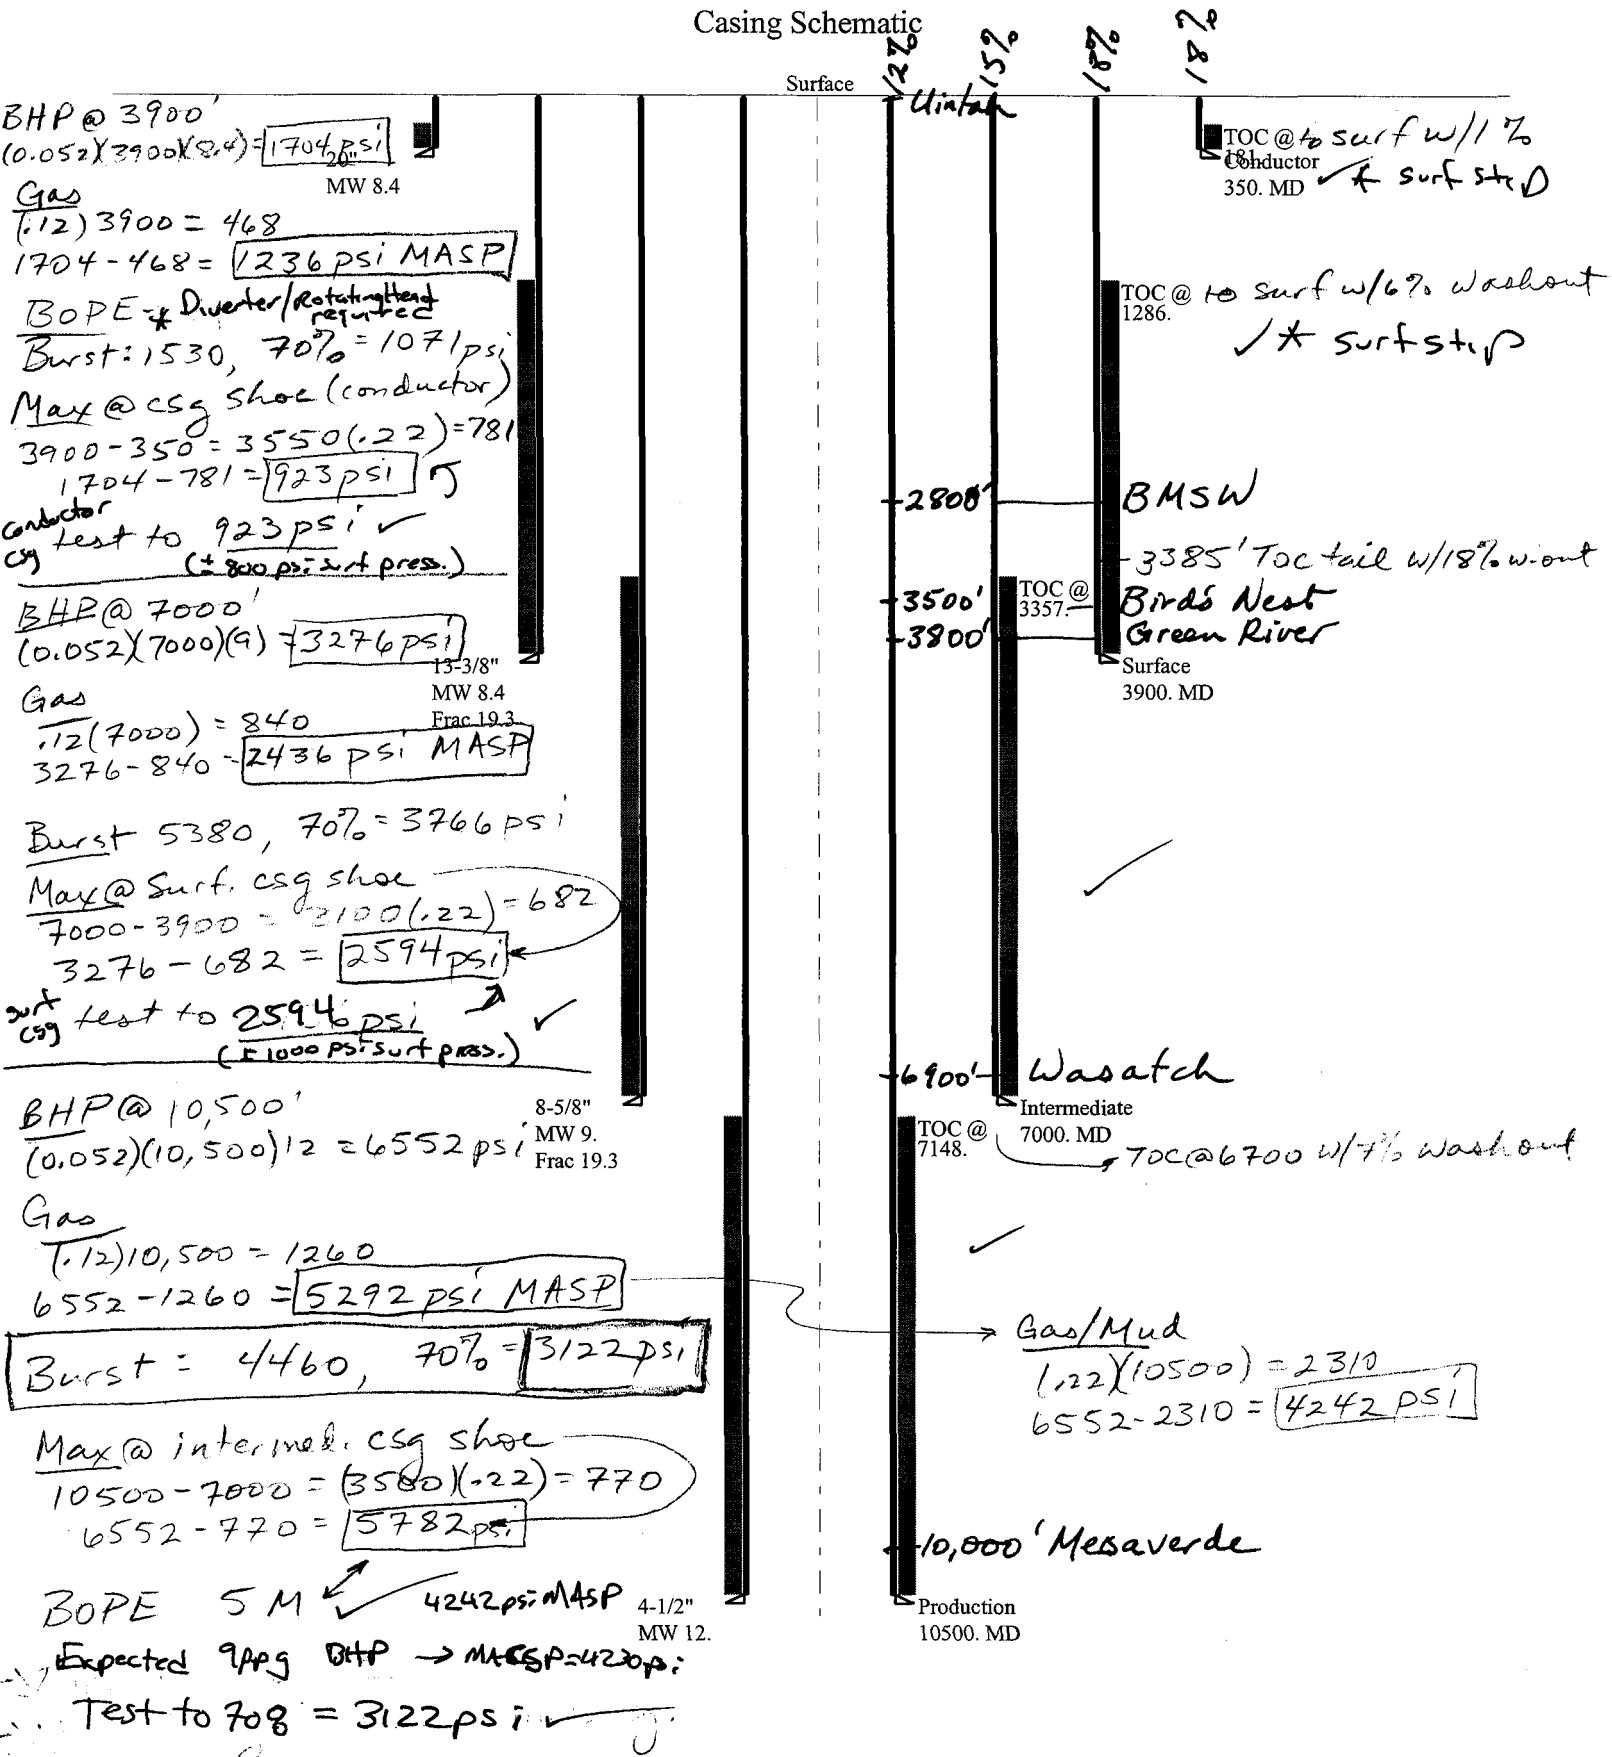 Casing Schematic
12%
15%
18%
18%
Surface
Uintah
BHP @ 3900'
(0.052)(3900)(8.4)=1704 psi
20"
MW 8.4
Gas
(.12)3900 = 468
1704-468= 1236 psi MASP
BOPE - * Diverter/Rotating Head
required
Burst: 1530, 70% = 1071 psi
Max @ csg shoe (conductor)
3900-350 = 3550(.22)=781
1704-781= 923 psi
conductor
csg test to 923 psi ✓
(± 800 psi surf press.)
BHP @ 7000'
(0.052)(7000)(9) = 3276 psi
13-3/8"
MW 8.4
Frac 19.3
Gas
.12(7000) = 840
3276-840 = 2436 psi MASP
Burst 5380, 70% = 3766 psi
Max @ Surf. csg shoe
7000-3900 = 3100(.22)=682
3276-682 = 2594 psi
surf
csg test to 2594 psi ✓
(± 1000 psi surf press.)
BHP @ 10,500'
(0.052)(10,500)12 = 6552 psi
8-5/8"
MW 9.
Frac 19.3
Gas
(.12)10,500 = 1260
6552-1260 = 5292 psi MASP
Burst: 4460, 70% = 3122 psi
Max @ intermed. csg shoe
10500-7000 = (3500)(.22)=770
6552-770 = 5782 psi
BOPE 5M ✓ 4242 psi MASP
4-1/2"
MW 12.
Expected 9ppg BHP →
Test to 70% = 3122 psi ✓
TOC @ to surf w/1%
181.
Conductor
350. MD ✓ * surf stip
TOC @ to surf w/6% washout
1286.
✓ * surf stip
2800' BMSW
3385' TOC tail w/18% w.out
TOC @
3357.
3500' Birds Nest
3800' Green River
Surface
3900. MD
✓
6900' Wasatch
Intermediate
7000. MD
TOC @
7148.
TOC@6700 w/7% washout
✓
Gas/Mud
(.22)(10500) = 2310
6552-2310 = 4242 psi
10,000' Mesaverde
Production
10500. MD